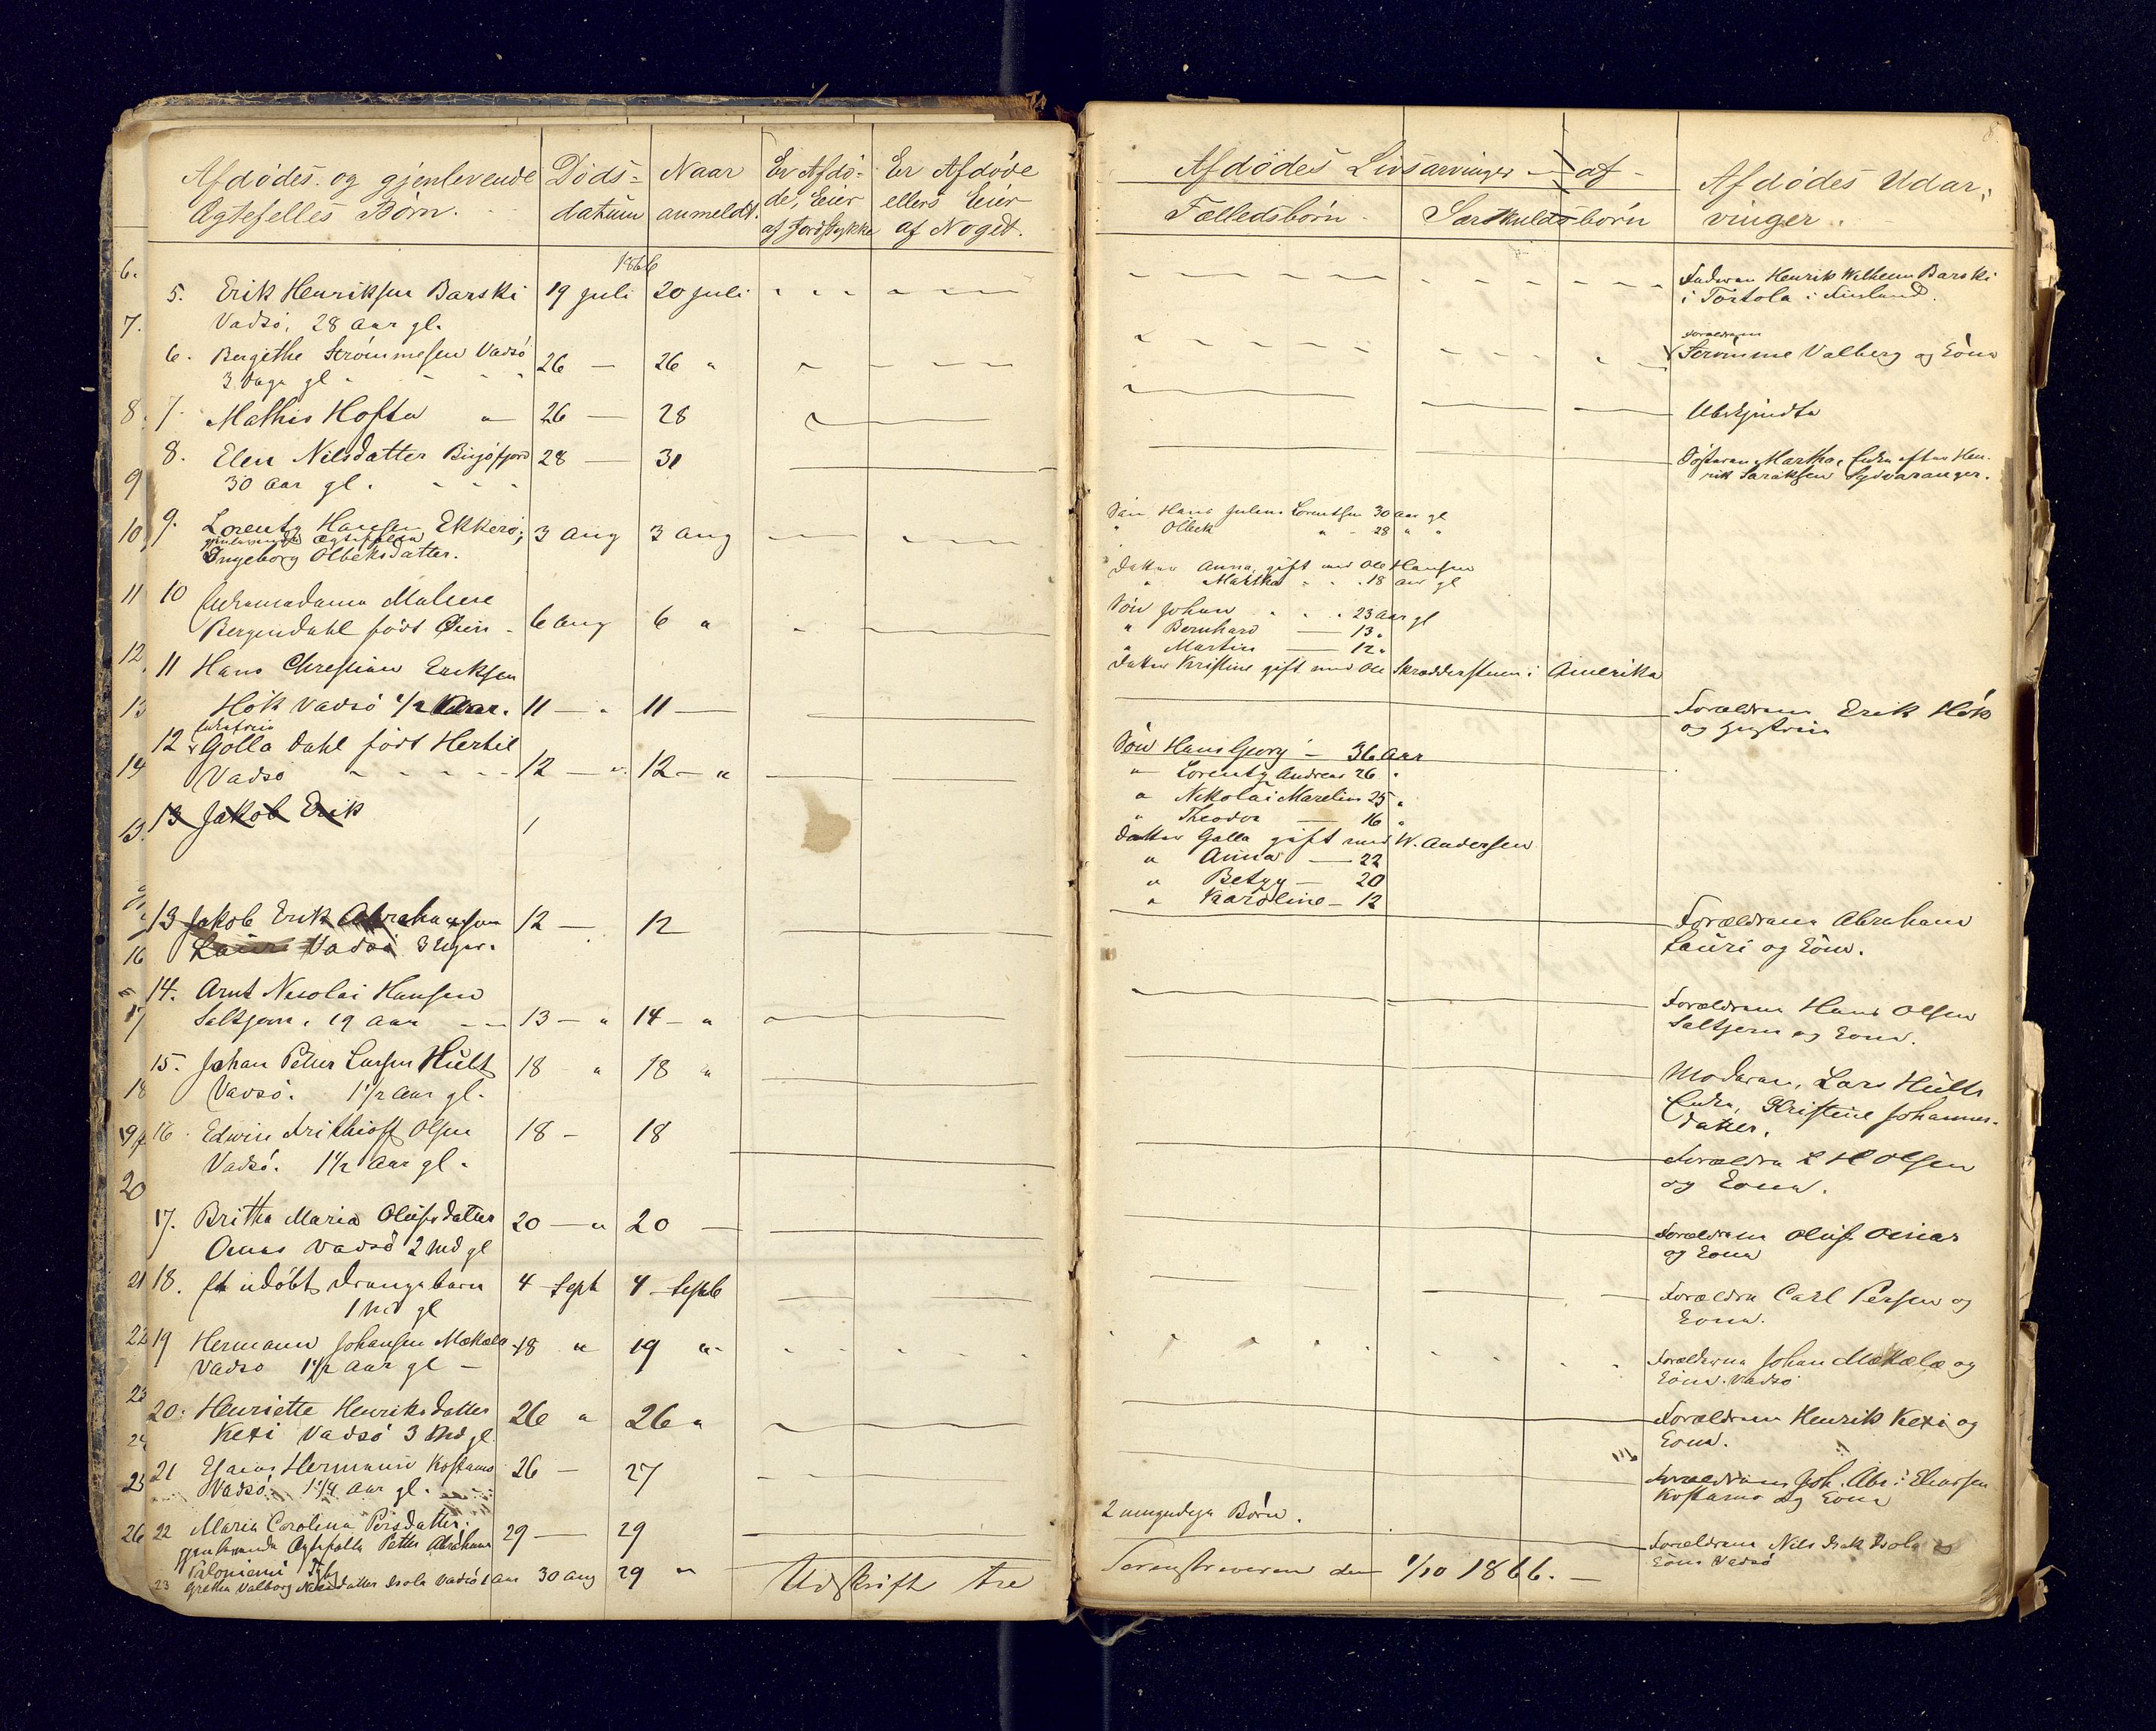 Afdødes og gjenlevende
Ægtefelles Børn.
Døds-
datum
Naar
anmeldt.
Er Afdø-
de, Eier
af Jordstykke
Er Afdøde
ellers Eier
af Noget.
1866
5. Erik Henriksen Barski 19 juli 20 juli
Vadsö, 28 Aar gl.
6. Bergithe Strömmesen Vadsö 26 — 26 "
3 Dage gl.
7. Mathis Hofta " 26 — 28
8. Elen Nilsdatter Bugöfjord 28 — 31
30 Aar gl.
9. Lorentz Hansen Ekkerö; 3 Aug 3 Aug
gjenlevende Ægtefelle
Ingeborg Olbeksdatter.
10 Enkemadame Malene
Bergendahl födt Öien 6 Aug 6 "
11 Hans Christian Eriksen
Hök Vadsö 1/2 Aar. 11 — " 11 —
Enkefrue
12 Golla Dahl födt Hertil
Vadsö 12 — " 12 — "
13 Jakob Erik
13 Jakob Erik Abrahamsen 12 — 12
Lauri Vadsö 3 Uger.
14. Arnt Nicolai Hansen
Saltjern, 19 Aar 13 — " 14 — "
15. Johan Petter Larsen Hult 18 " 18 "
Vadsö. 1 1/2 Aar gl.
16. Edwin Frithioff Olsen 18 — 18
Vadsö. 1 1/2 Aar gl.
17. Britha Maria Olufsdatter 20 — " 20 —
Vadsö 2 Md gl
18. Et udöbt Drengebarn 4 Sept 4 Septb
1 Md gl
19 Hermann Johansen Mækælæ 18 " 19 "
Vadsö 1 1/2 Aar gl —
20. Henriette Henriksdatter 26 " 26 "
Kexi Vadsö 3 Md gl.
21 Esaias Hermann Kostamo 26 — 27
Vadsö, 1 1/4 Aar gl.
22 Maria Carolina Persdatter. 29 — 29
gjenlevende Ægtefælle Petter Abraham
Paloniemi
23 Gretha Valborg Nilsdatter Isola Vadsö 1 Aar 30 Aug 29 "
Udskrift
6.
7.
8.
9
10
11
12.
13
14
15.
16
17
18
19
20
21
22
23
24
25
26
8
Afdødes Livsarvinger — af —
Fælledsbörn.
Særskuldsbörn
Afdødes Udar-
vinger.
Faderen Henrik Wilhelm Barski
i Törtola i Finland.
Forældrene
Strömme Valberg og Kone
Ubekjendte
Søsteren Martha, Enke efter Hen-
rik Saraksen Sydvaranger.
Sön Hans Julius Lorentsen 30 Aar gl
" Olbek " " 28 " "
Datter Anna, gift med Ole Hansen
" Martha 18 Aar gl
Sön Johan 23 Aar gl
" Bernhard — 13 "
" Martin — 12 "
Datter Kristine gift med Ole Skreddersteen i Amerika
Forældrene Erik Hök
og Hustrue
Sön Hans Georg — 36 Aar
" Lorentz Andreas 26 "
" Nikolai Marelius 25 "
" Theodor — 16 "
Datter Golla gift med W. Andersen
" Anna — 22
" Betzy — 20
" Karoline — 12
Forældrene Abraham
Lauri og Kone.
Forældrene Hans Olsen
Saltjern og Kone.
Moderen, Lars Hults
Enke, Kristine Johannes-
datter.
Forældre L H Olsen
og Kone.
Forældrene Oluf
og Kone
Forældre Carl Persen og
Kone.
Forældrene Johan Mækælæ og
Kone. Vadsö
Forældrene Henrik Kexi og
Kone.
Forældrene Joh. Abr. Eliassen
Kostamo og Kone
2 umyndige Börn.
Forældrene Nils Isak Isola og
Kone Vadsö
Sorenskriveren den 1/10 1866. —